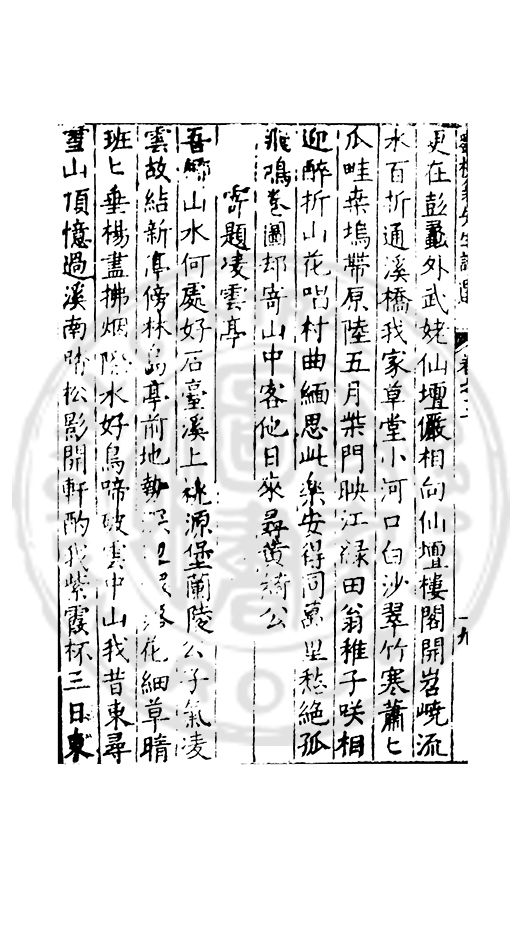 更在彭蠡外武姥仙壇儼相向仙壇樓閣開岧嶢流
水百折通溪橋我家草堂小河口白沙翠竹寒蕭匕
瓜畦桒塢帶原陸五月柴門映江綠田翁稚子咲相
迎醉折山花唱村曲緬思此樂安得同萬里愁絕孤
飛鴻卷圖却寄山中客他日來尋黄綺公
寄題凌雲亭
吾鄉山水何處好石臺溪上桃源堡蘭陵公子氣凌
雲故結新亭傍林島亭前地勢落花細草晴
班匕垂楊盡拂烟際水好鳥啼破雲中山我昔東尋
雪山頂憶過溪南踏松影開軒酌我紫霞杯三日東